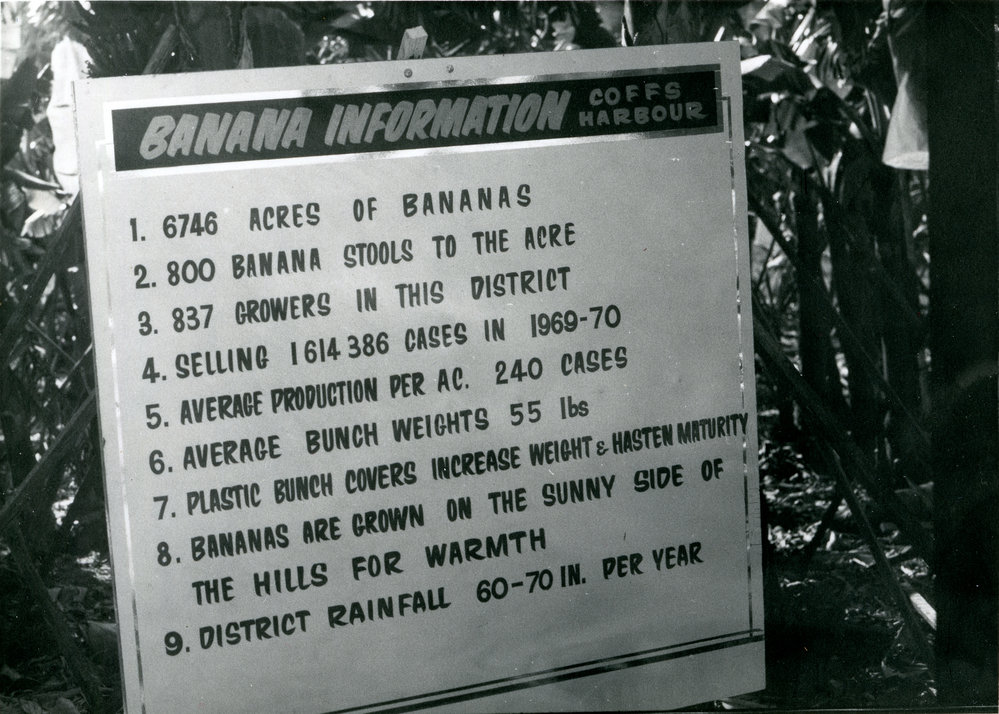 BANANA INFORMATION COFFS HARBOUR
1. 6746 ACRES OF BANANAS
2. 800 BANANA STOOLS TO THE ACRE
3. 837 GROWERS IN THIS DISTRICT
4. SELLING 1614386 CASES IN 1969-70
5. AVERAGE PRODUCTION PER AC. 240 CASES
6. AVERAGE BUNCH WEIGHTS 55 lbs
7. PLASTIC BUNCH COVERS INCREASE WEIGHT & HASTEN MATURITY
8. BANANAS ARE GROWN ON THE SUNNY SIDE OF
THE HILLS FOR WARMTH
9. DISTRICT RAINFALL 60-70 IN. PER YEAR